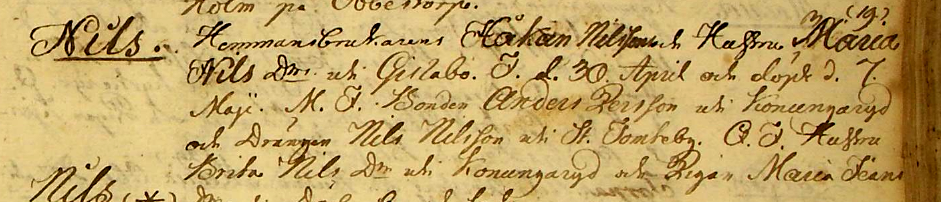 Holm på Obbestorp.
3 (19.)
Nils. Hemmansbrukarens Håkan Nilssons och Hustru Maria
Nils Dotter uti Gislabo. F. d. 30. April och döpt d. 7.
Maji. M. F. Bonden Anders Persson uti Konungaryd
och Drängen Nils Nilsson uti St. Tomteby. Q. F. Hustru
Brita Nils Dr uti Konungaryd och Pigan Maria Jeans
Nils (*)